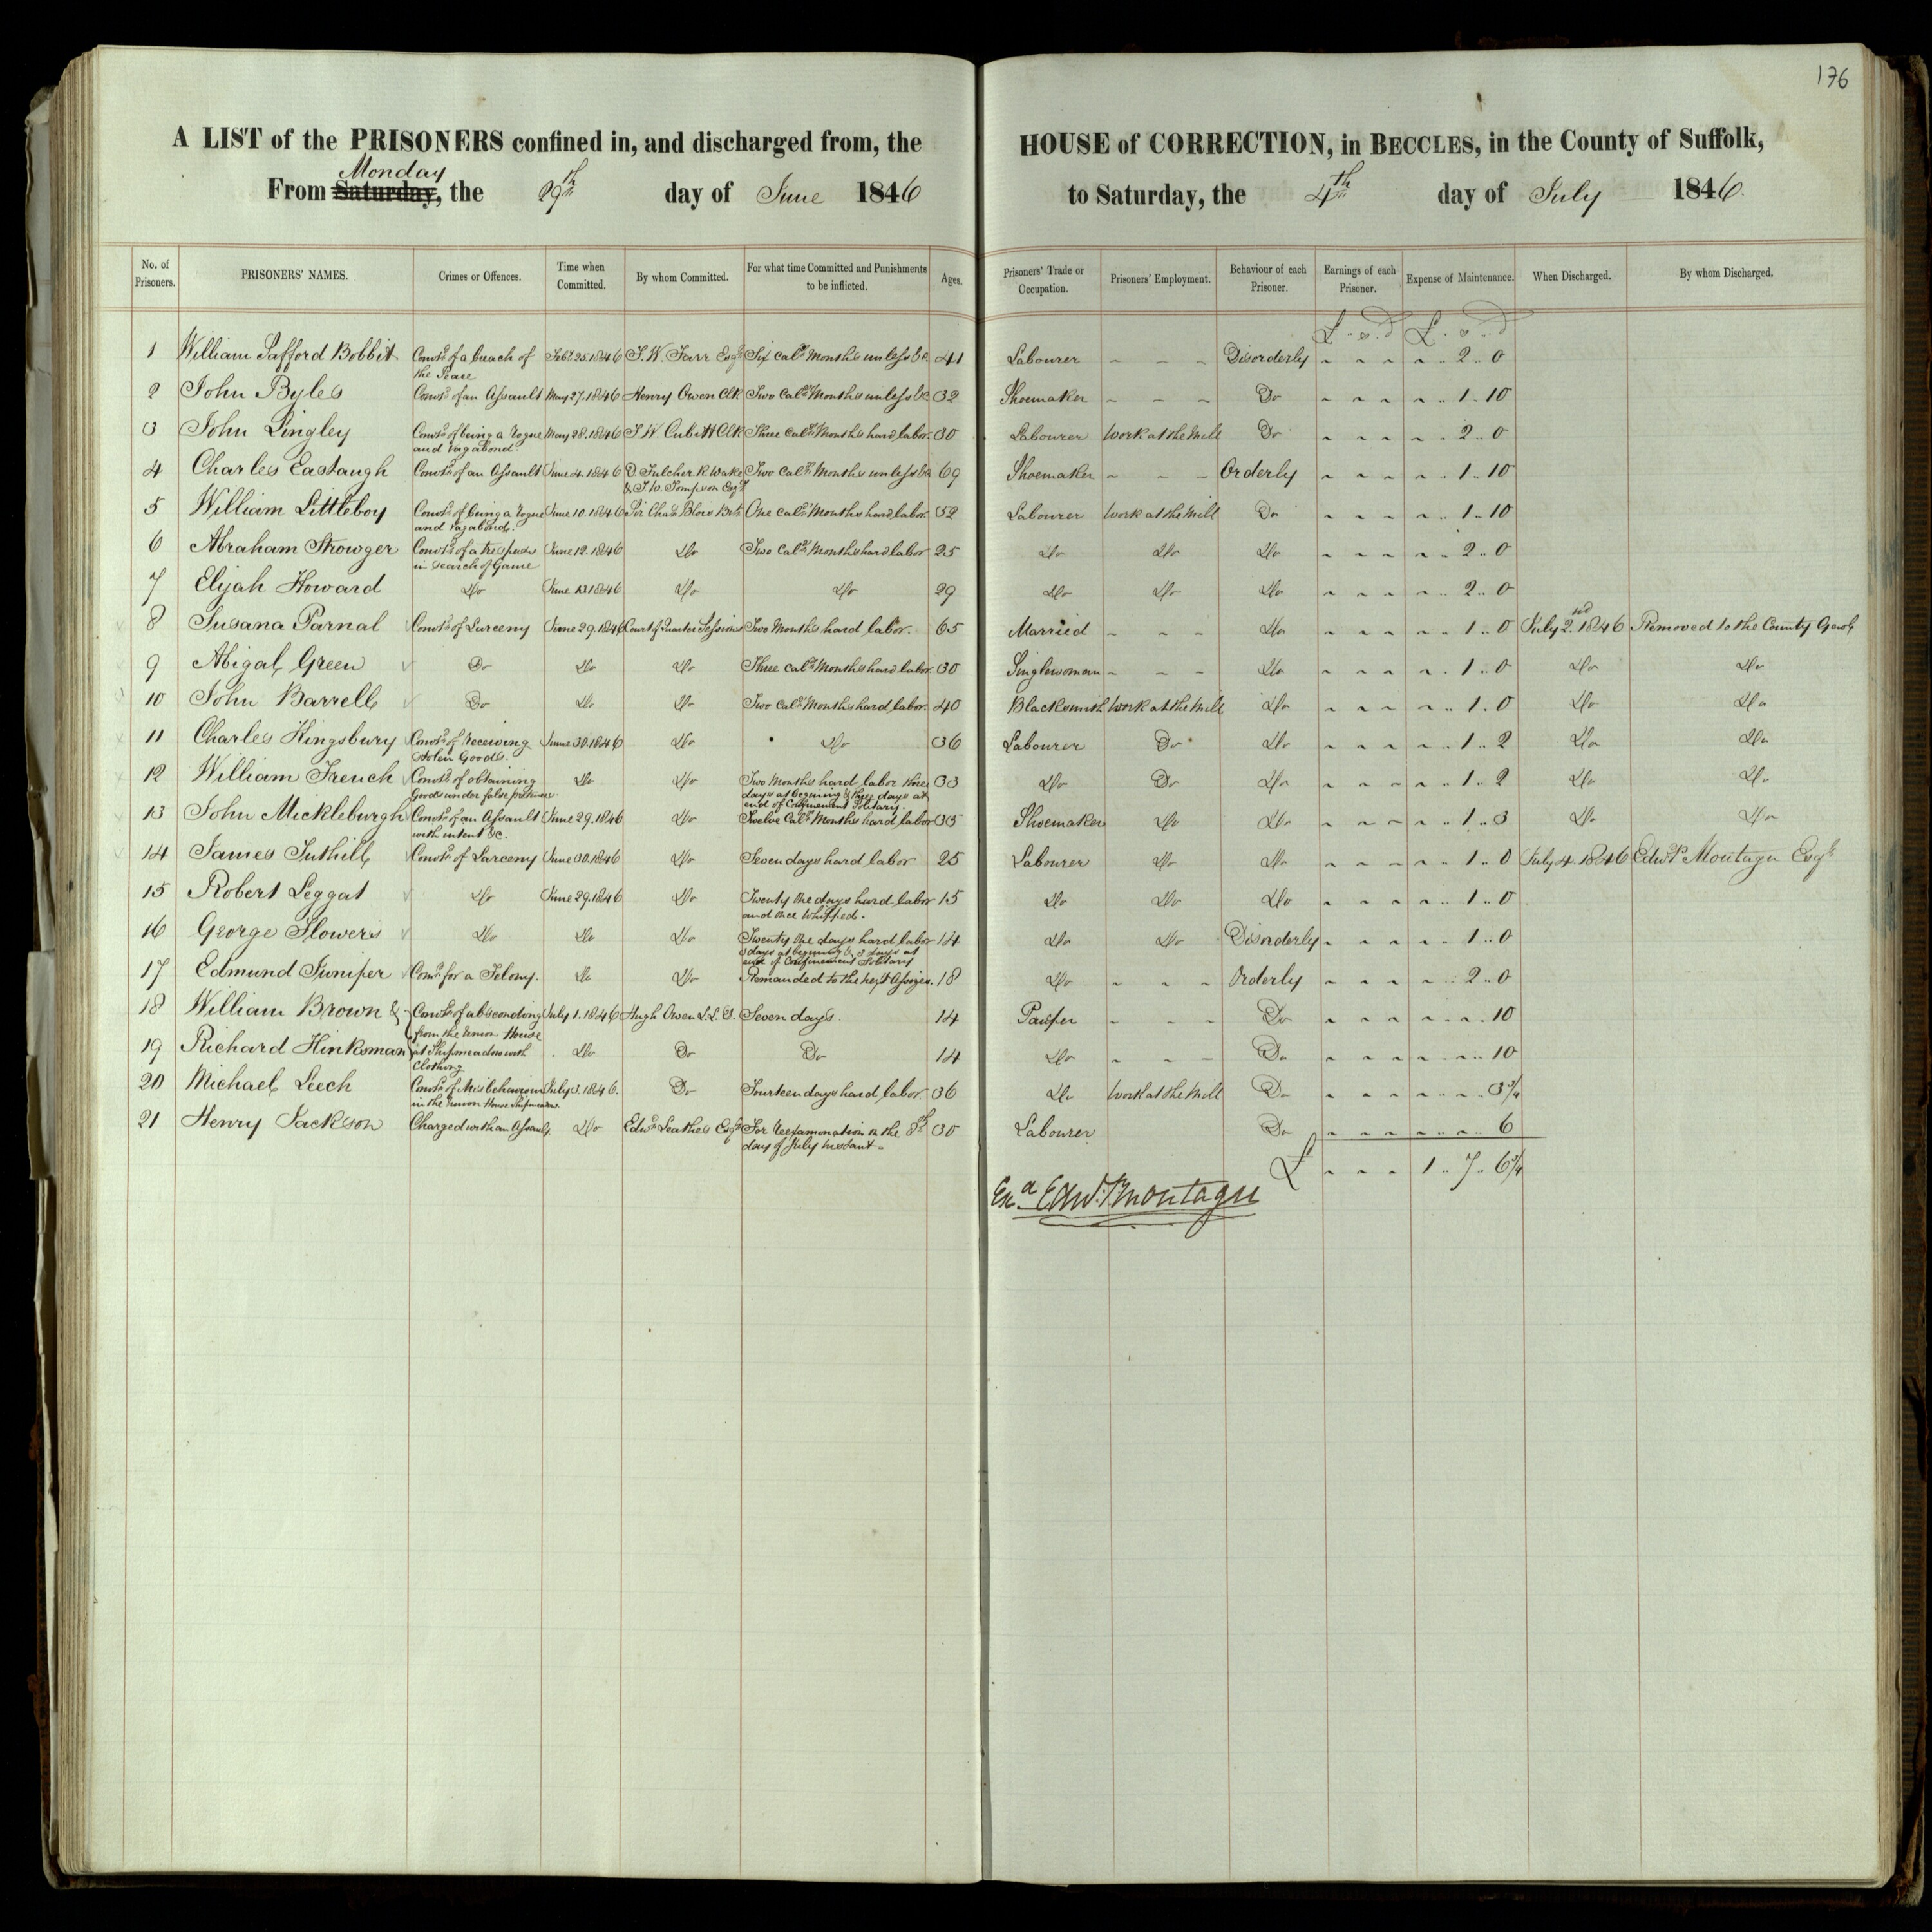 176
A LIST of the PRISONERS confined in, and discharged from, the HOUSE of CORRECTION, in BECCLES, in the County of Suffolk,
Monday
From Saturday, the 29th day of June 1846 to Saturday, the 4th day of July 1846.
No. of Prisoners. PRISONERS' NAMES. Crimes or Offences. Time when Committed. By whom Committed. For what time Committed and Punishments to be inflicted. Ages. Prisoners' Trade or Occupation. Prisoners' Employment. Behaviour of each Prisoner. Earnings of each Prisoner. Expense of Maintenance. When Discharged. By whom Discharged.
£ .. s .. d £ .. s .. d
1 William Safford Bobbit Convd. of a breach of the Peace Feby. 25 1846 F.W. Farr Esqr. Six Calr. Months unless &c 41 Labourer - - - Disorderly 2 .. 0
2 John Byles Convd. of an Assault May 27. 1846 Henry Owen Clk Two Calr. Months unless &c 32 Shoemaker - - - Do 1 .. 10
3 John Lingley Convd. of being a Rogue and Vagabond. May 28. 1846 F.W. Cubitt Clk Three Calr. Months hard labor. 30 Labourer Work at the Mill Do 2 .. 0
4 Charles Eastaugh Convd. of an Assault June 4. 1846 D. Fulcher R. Wake & T.W. Tompson Esqrs Two Calr. Months unless &c 69 Shoemaker - - - Orderly 1 .. 10
5 William Littleboy Convd. of being a Rogue and Vagabond. June 10. 1846 Sir Chas. Blois Bt. One Calr. Months hard labor. 52 Labourer Work at the Mill Do 1 .. 10
6 Abraham Strowger Convd. of a trespass in search of Game June 12. 1846 Do Two Calr. Months hard labor 25 Do Do Do 2 .. 0
7 Elijah Howard Do June 13 1846 Do Do 29 Do Do Do 2 .. 0
8 Susana Parnal Convd. of Larceny June 29. 1846 Court of Quarter Sessions Two Months hard labor. 65 Married - - - Do 1 .. 0 July 2nd. 1846 Removed to the County Gaol
9 Abigal Green Do Do Do Three Calr. Months hard labor. 30 Singlewoman - - - Do 1 .. 0 Do Do
10 John Barrell Do Do Do Two Calr. Months hard labor. 40 Blacksmith Work at the Mill Do 1 . 0 Do Do
11 Charles Kingsbury Convd. of receiving Stolen Goods. June 30. 1846 Do Do 36 Labourer Do Do 1 .. 2 Do Do
12 William French Convd. of obtaining Goods under false pretences. Do Do Two Months hard labor three days at begining & three days at end of Confinement Solitary. 33 Do Do Do 1 .. 2 Do Do
13 John Mickleburgh Convd. of an Assault with intent &c. June 29. 1846 Do Twelve Calr. Months hard labor 35 Shoemaker Do Do 1 .. 3 Do Do
14 James Tuthill Convd. of Larceny June 30. 1846 Do Seven days hard labor 25 Labourer Do Do 1 .. 0 July 4. 1846 Edwd. P. Montagu Esqr.
15 Robert Leggat Do June 29. 1846 Do Twenty One days hard labor and once Whipped. 15 Do Do Do 1 .. 0
16 George Flowers Do Do Do Twenty One days hard labor 3 days at begining & 3 days at end of Confinement Solitary 14 Do Do Disorderly 1 .. 0
17 Edmund Juniper Comd. for a Felony. Do Do Remanded to the next Assizes. 18 Do - - - Orderly 2 .. 0
18 William Brown & Convd. of absconding from the Union House at Shipmeadow with Clothing July 1. 1846 Hugh Owen L.L.D. Seven days. 14 Pauper - - - Do 10
19 Richard Hinksman Do Do Do 14 Do - - - Do 10
20 Michael Leech Convd. of Misbehaviour in the Union House Shipmeadow. July 3. 1846. Do Fourteen days hard labor. 36 Do Work at the Mill Do 3 3/4
21 Henry Jackson Charged with an Assault Do Edwd. Leathes Esqr. For Reexamination on the 8th day of July Instant - 30 Labourer Do 6
£ - - - 1 .. 7 .. 6 3/4
Exd. Edwd. Montagu